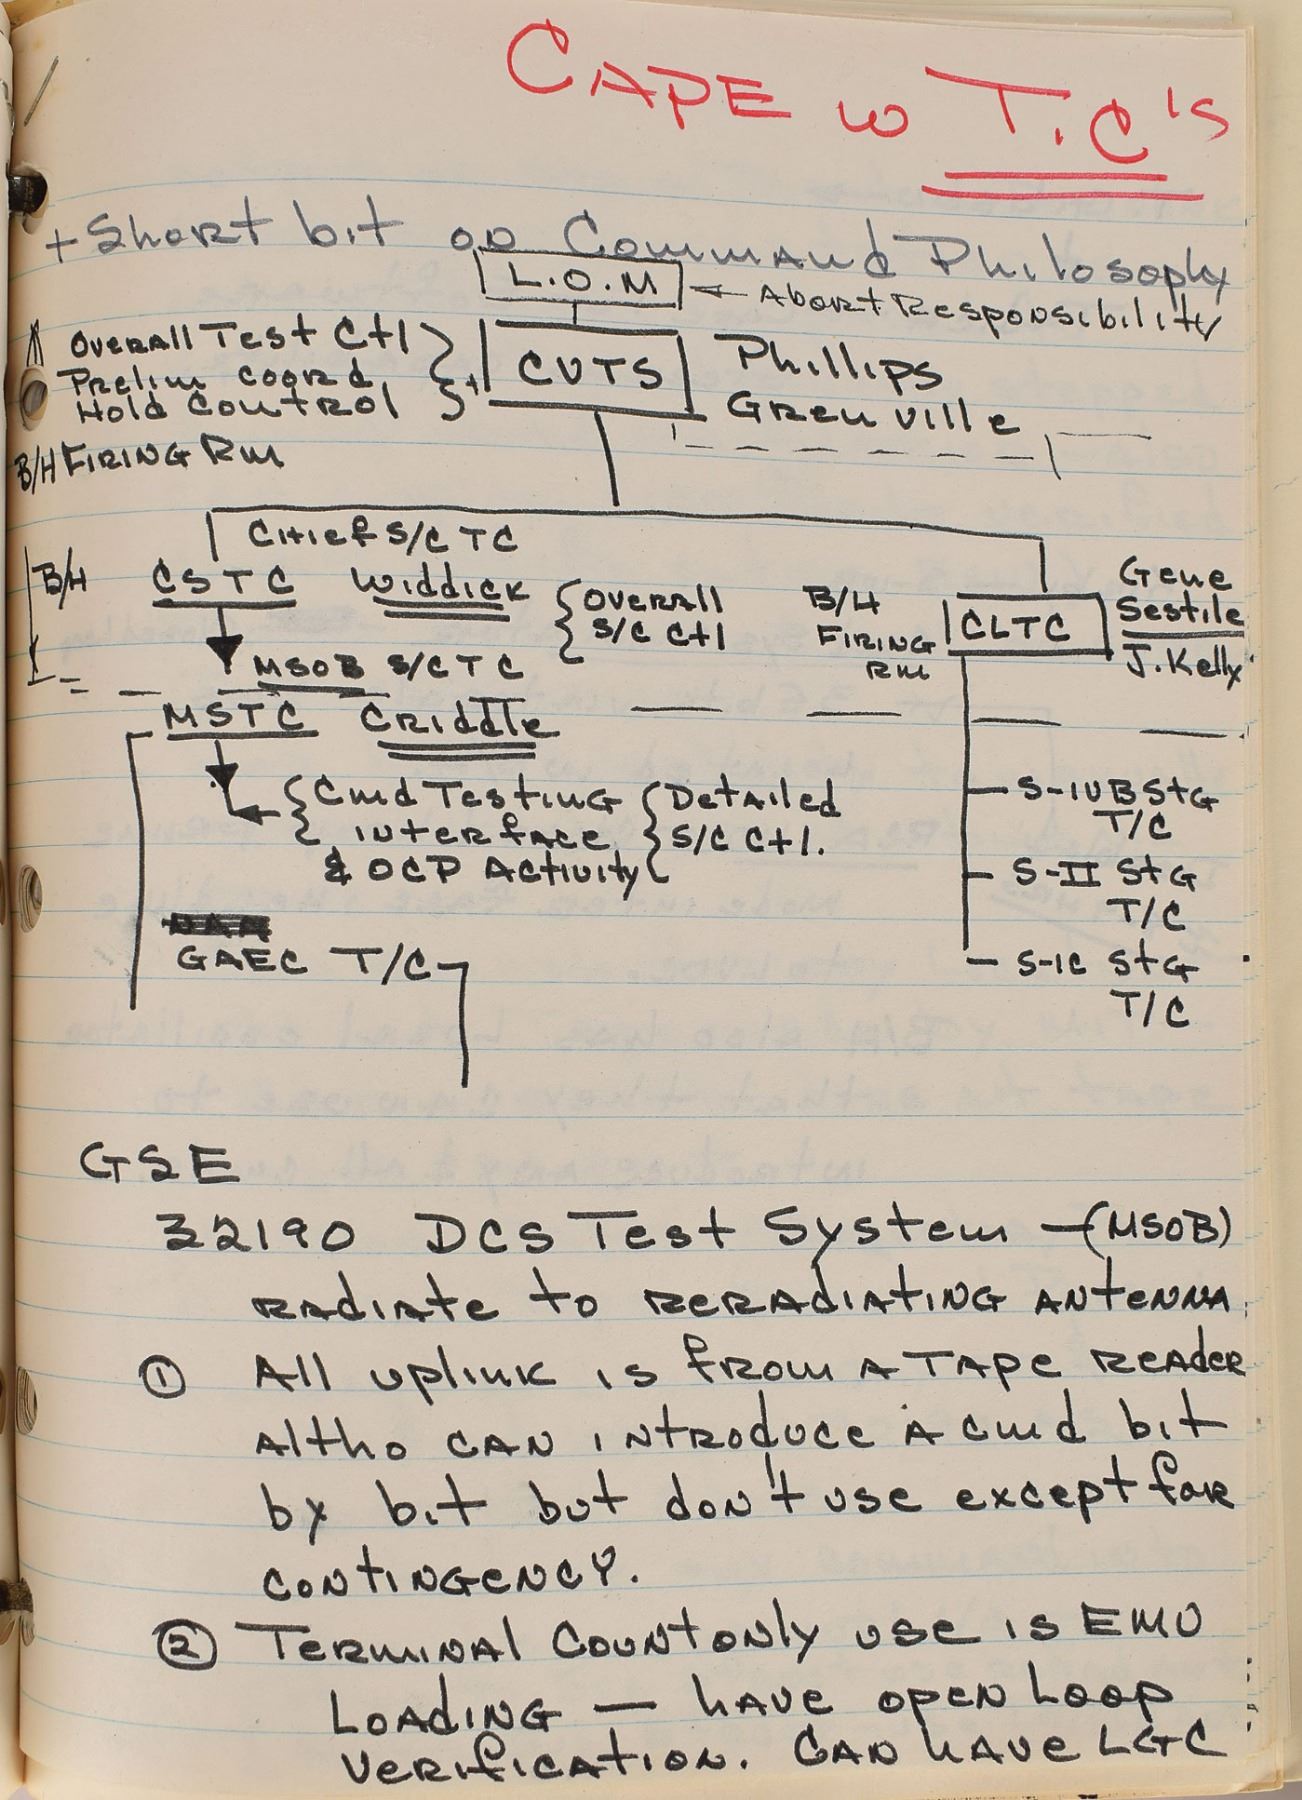 CAPE w T.C's
+ Short bit on Command Philosophy
L.O.M ← Abort Responsibility
Overall Test Ctl
Prelim coord,
Hold Control
CVTS
Phillips
Grenville
B/H FIRING Rm
Chief S/C TC
B/H
CSTC Widdick
Overall
S/C Ctl
B/H
FIRING
RM
CLTC
Gene
Sestile
J. Kelly
MSOB S/C TC
MSTC Criddle
Cmd Testing
interface
& OCP Activity
Detailed
S/C Ctl.
S-IVB StG
T/C
S-II StG
T/C
S-IC StG
T/C
GAEC T/C
GSE
32190 DCS Test System - (MSOB)
radiate to reradiating antenna
① All uplink is from a tape reader
altho can introduce a cmd bit
by bit but don't use except for
contingency.
② Terminal Count only use is EMU
Loading — have open loop
verification. Can have LGC